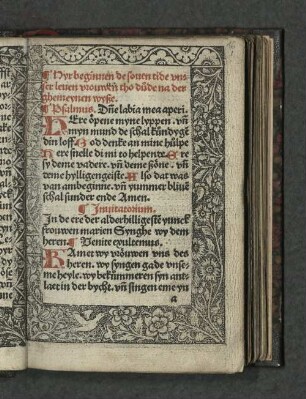 ¶ Hyr beginnen de souen tide vns
ser leuen vrouwen tho düde na der
ghemeynen wyße.
¶ Psalmus. Dñe labia mea aperi.
HEre öpene myne lyppen. vñ
myn mund de schal kündyge
din loff. God denke an mine hülpe
Here snelle di mi to helpen. Ere
sy deme vadere. vñ deme söne. vñ
deme hylligen geiste. Also dat was
van ambeginne. vñ yummer bliuē
schal sunder ende Amen.
¶ Inuitatorium.
In de ere der alderhilligestē yunck
frouwen marien Synghe wy dem
heren. ¶ Venite exultemus.
KAmet wy vröuwen vns des
heren. wy syngen gade vnse
me heyle. wy bekümmeren syn ant
laet in der bycht. vñ singen eme yn
a